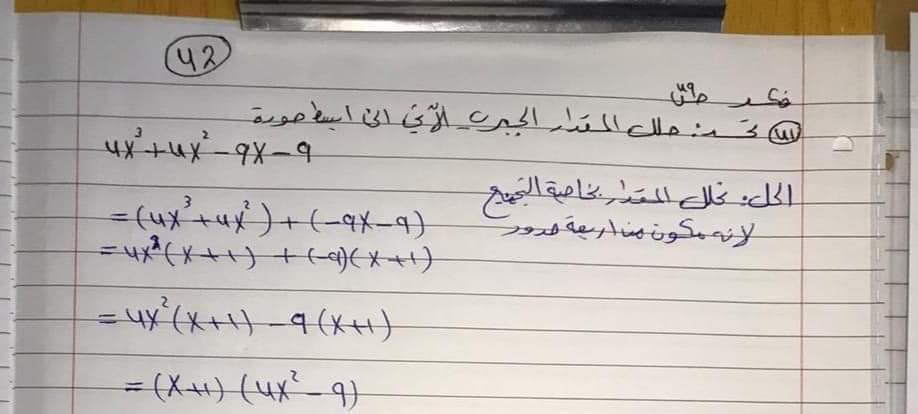 42
فكر ص٩٩
تحد: حلل المقدار الجبري الآتي الى ابسط صورة
4x³+4x²-9x-9
الحل: نحلل المقدار بخاصية التجميع
لانه مكون من اربعة حدود
=(4x³+4x²)+(-9x-9)
=4x²(x+1)+(-9)(x+1)
=4x²(x+1)-9(x+1)
=(x+1)(4x²-9)